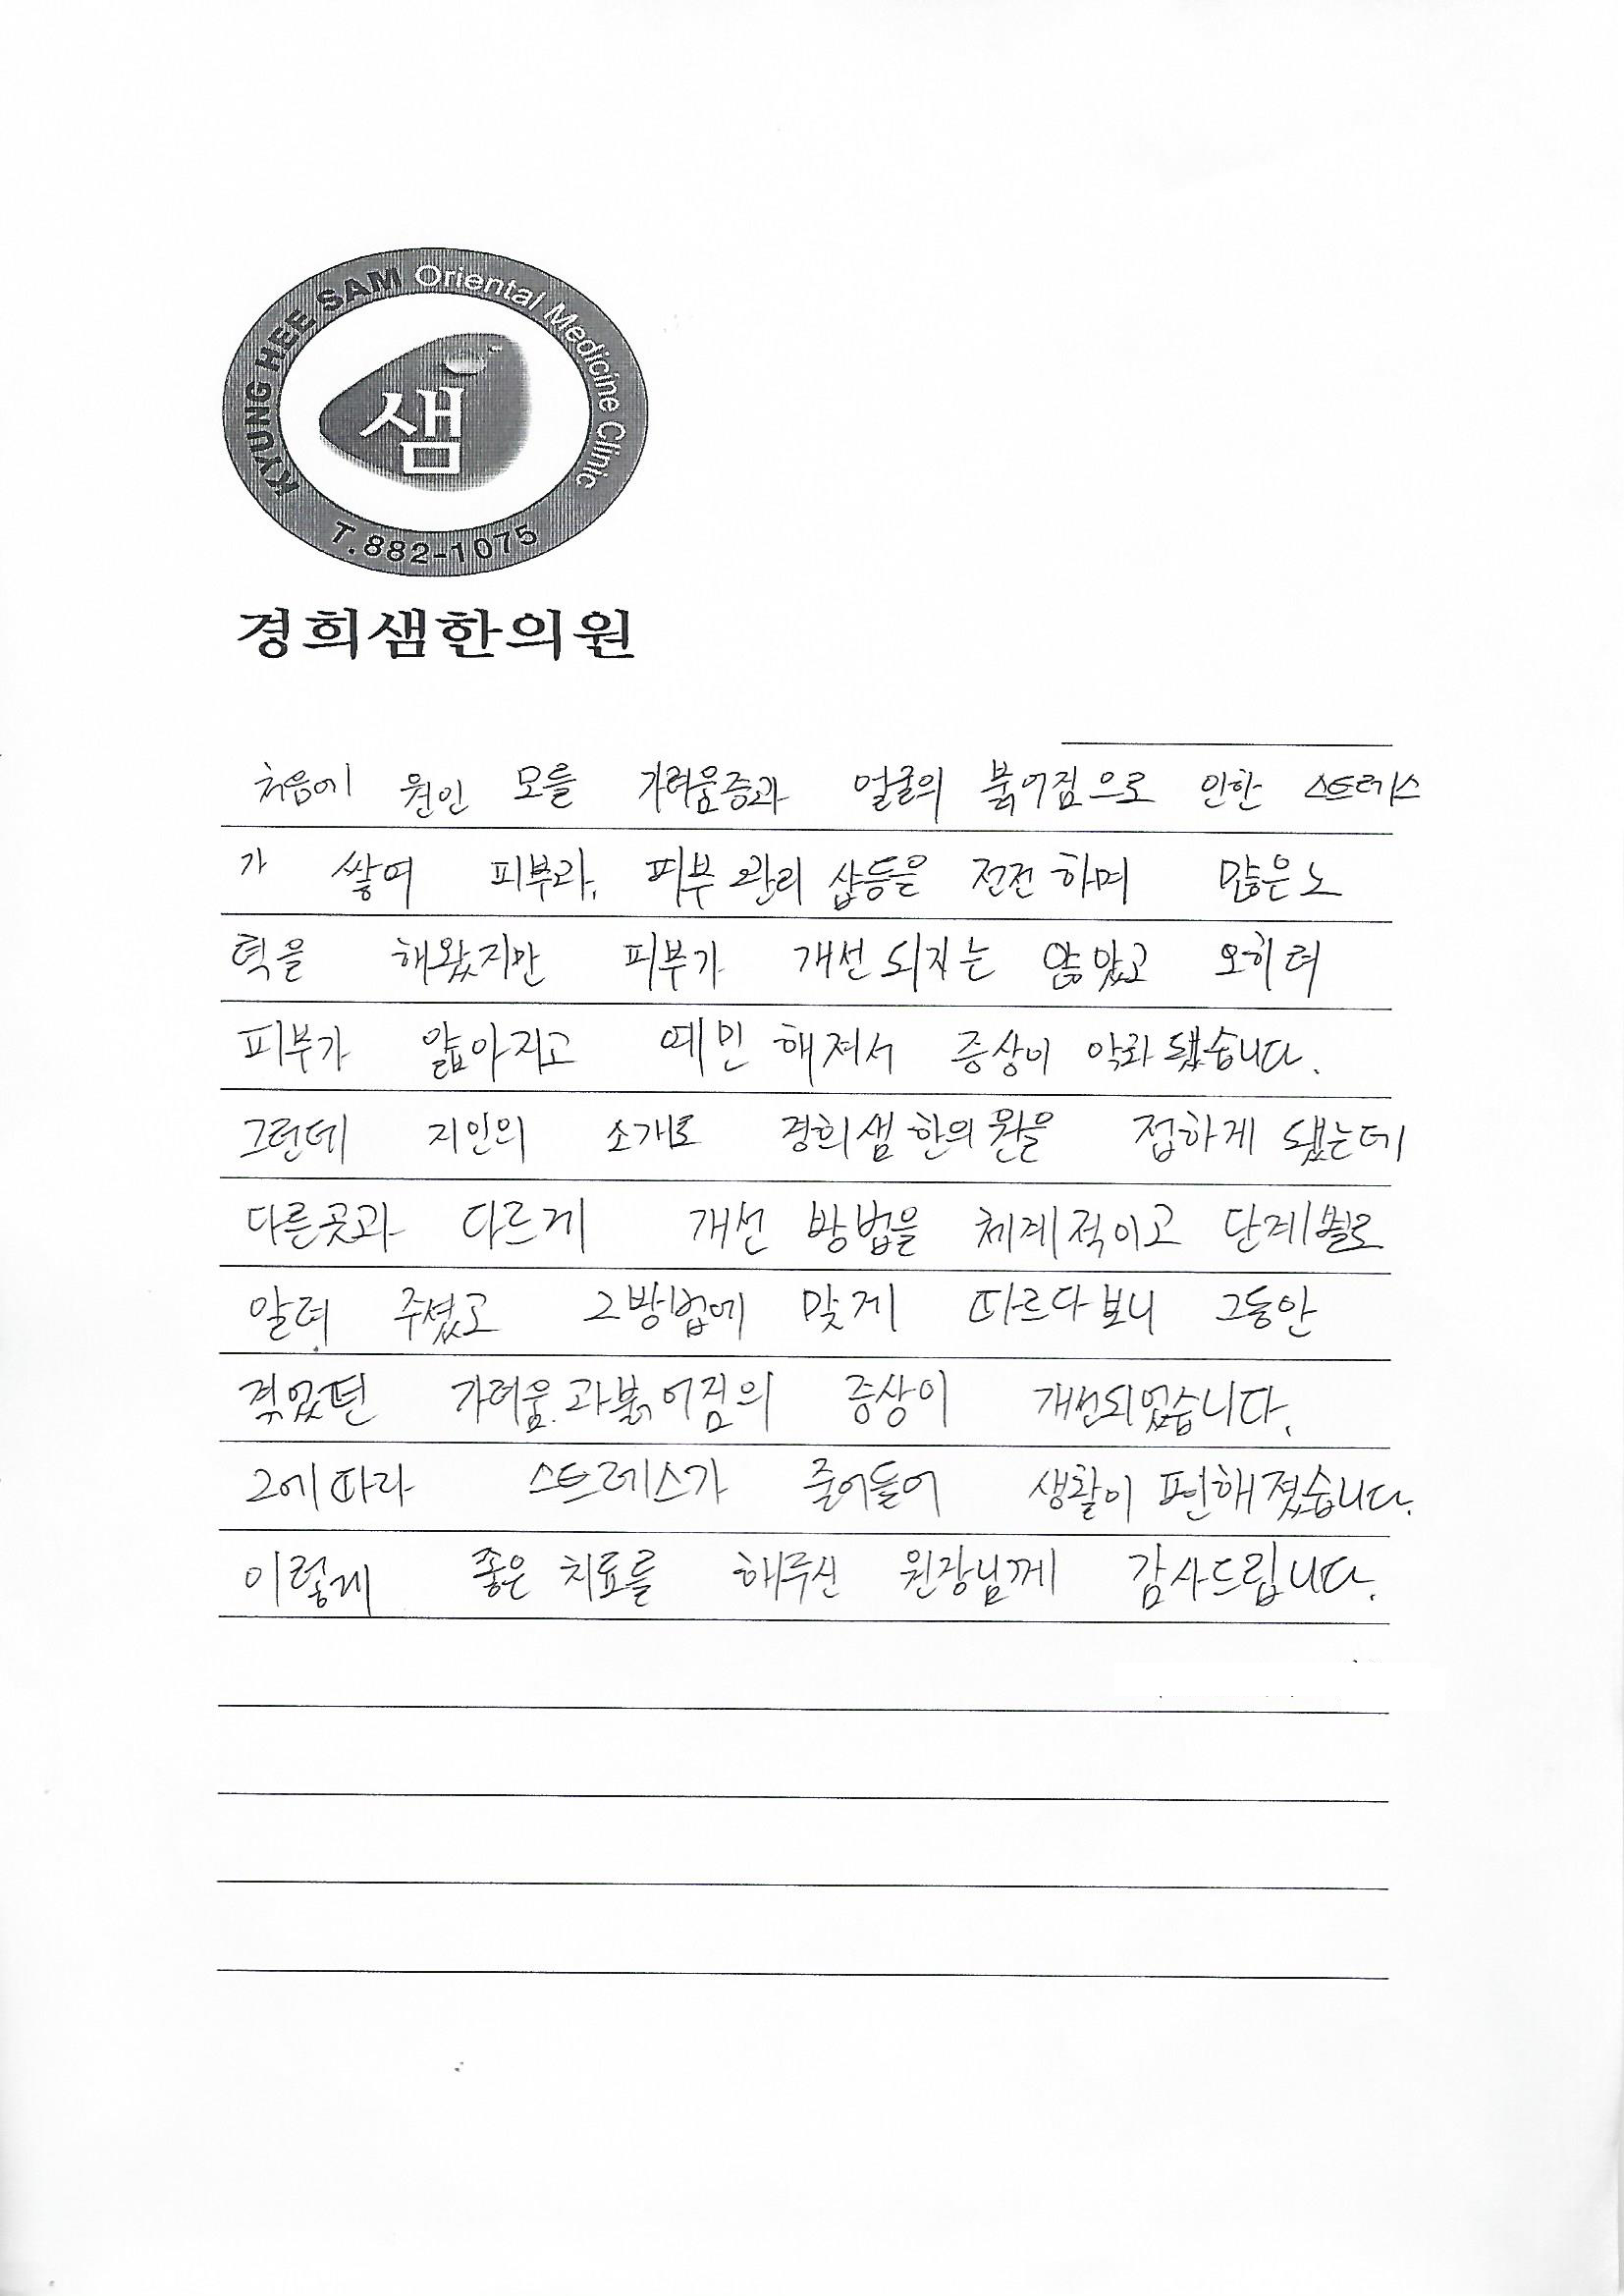 KYUNG HEE SAM Oriental Medicine Clinic
샘
T.882-1075
경희샘한의원
처음에 원인 모를 가려움증과 얼굴의 붉어짐으로 인한 스트레스
가 쌓여 피부과, 피부 관리 샵등을 전전 하며 많은 노
력을 해왔지만 피부가 개선 되지는 않았고 오히려
피부가 얇아지고 예민 해져서 증상이 악화 됐습니다.
그런데 지인의 소개로 경희샘 한의원을 접하게 됐는데
다른곳과 다르게 개선 방법을 체계적이고 단계별로
알려 주셨고 그방법에 맞게 따르다 보니 그동안
겪었던 가려움과 붉어짐의 증상이 개선되었습니다.
그에 따라 스트레스가 줄어들어 생활이 편해졌습니다.
이렇게 좋은 치료를 해주신 원장님께 감사드립니다.